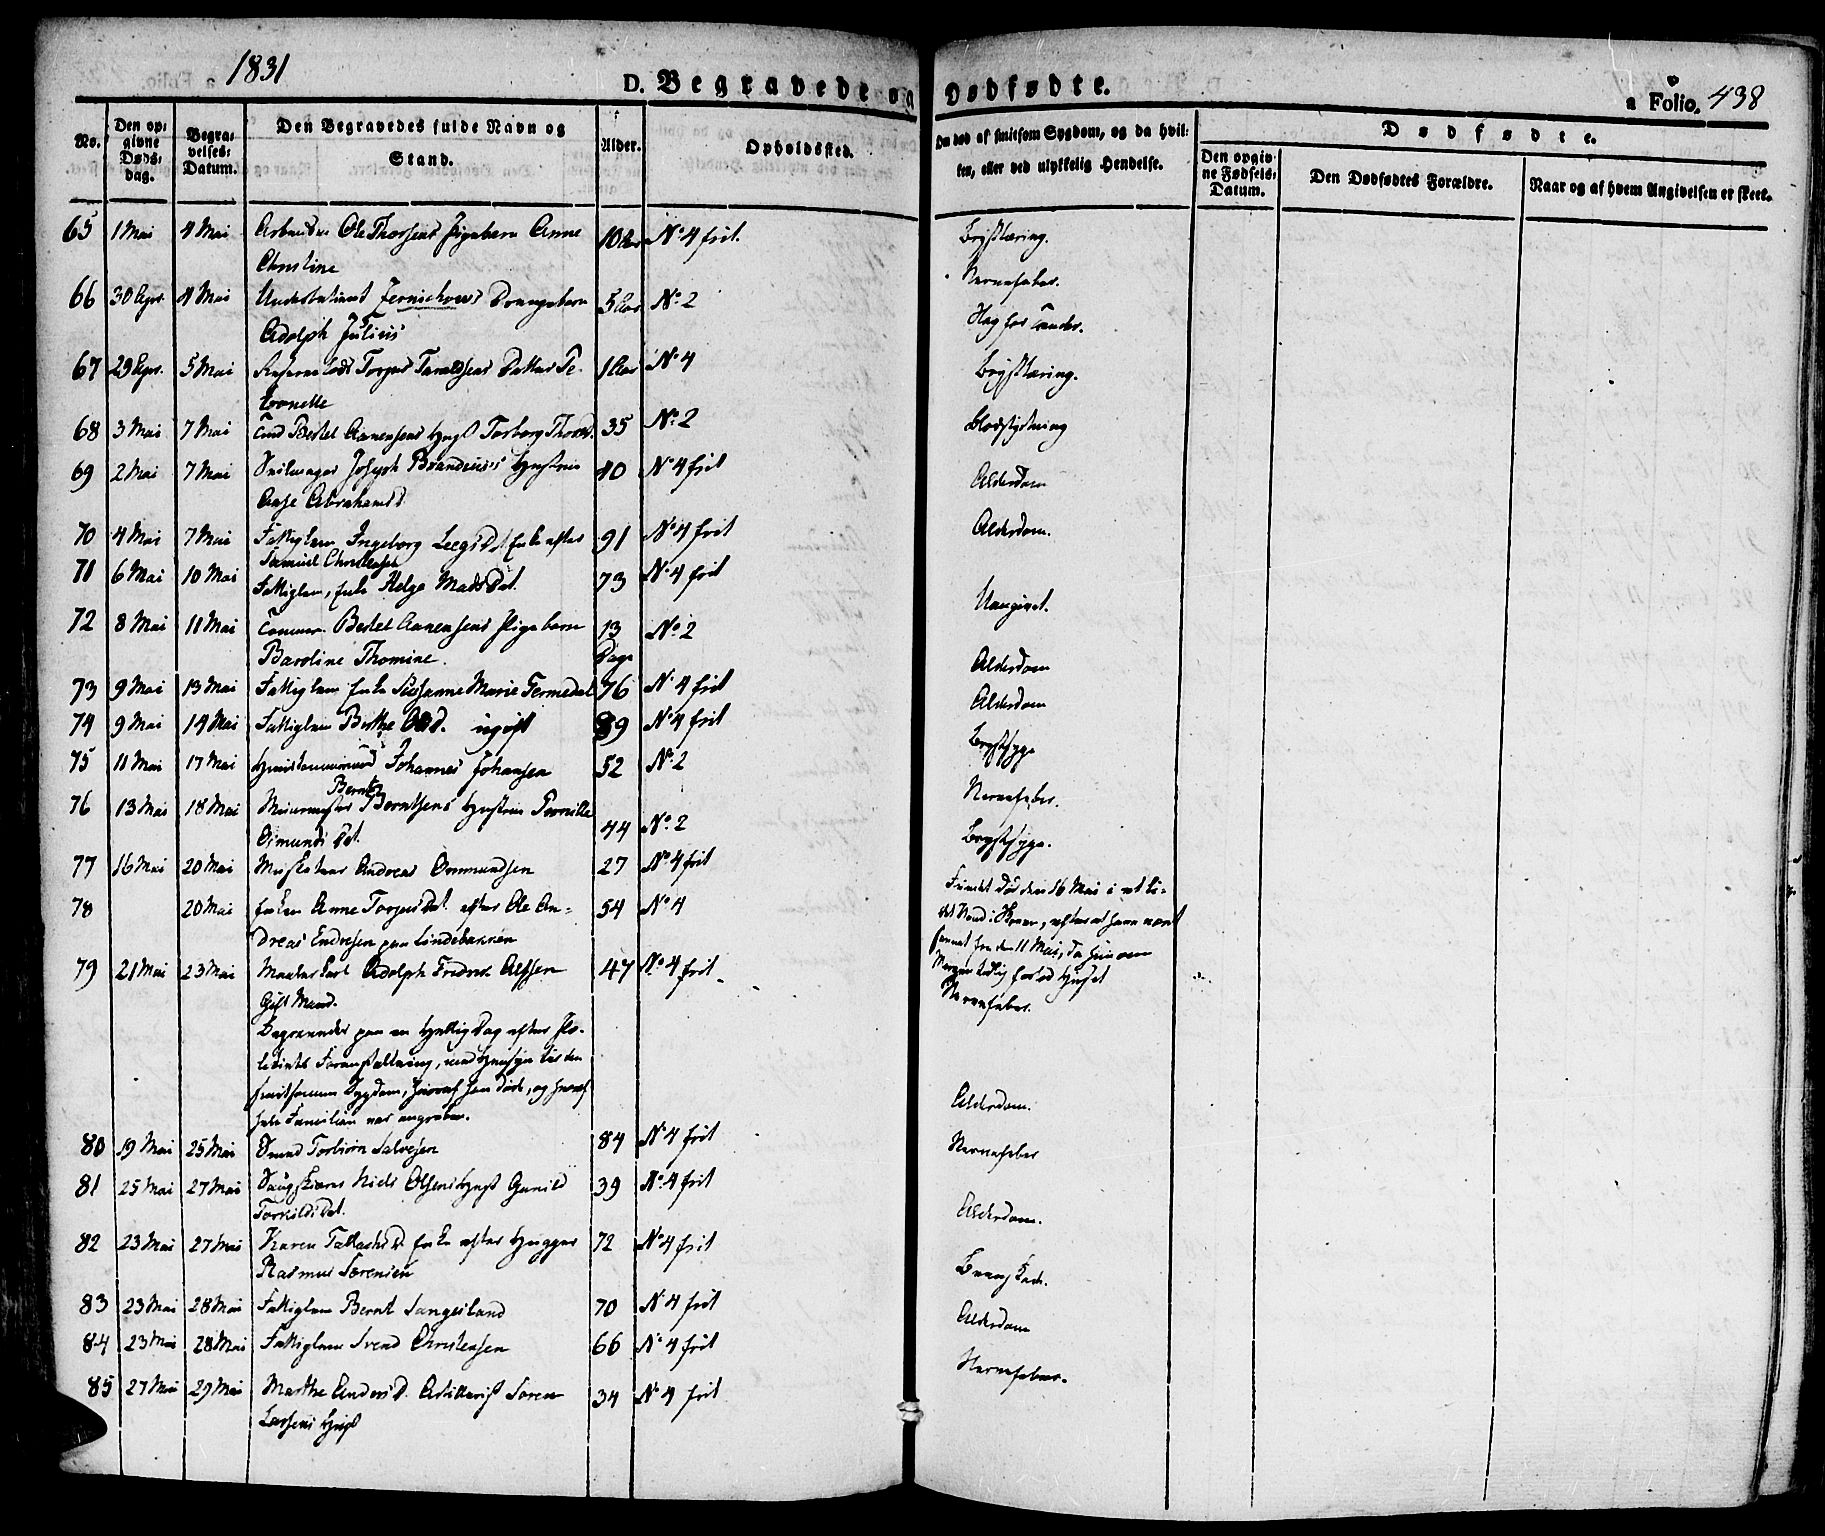 1831
D. Begravede og Dødfødte.
a Folio. 438
No.
Den op-
givne
Døds-
dag.
Begra-
velses-
Datum.
Den Begravedes fulde Navn og
Stand.
Alder.
Opholdssted.
Om død af smitsom Sygdom, og da hvil-
ken, eller ved ulykkelig Hendelse.
Dødfødte.
Den opgiv-
ne Fødsels-
Datum.
Den Dødfødtes Forældre.
Naar og af hvem Angivelsen er skeet.
65 1 Mai 4 Mai Ole Thorsens Pigebarn Anne 10 Aar No 4 frit. Brysttæring.
Christine
66 30 Apr. 4 Mai Jernichows Drengebarn 5 Aar No 2 Nervefeber.
Adolph Julius
67 29 Apr. 5 Mai Torger Taraldsens Datter Pe- 1 Aar No 4
tronelle Brysttæring.
68 3 Mai 7 Mai Bertel Aanensens Hust Torborg Thorsd. 35 No 2 Blodstyrtning
69 2 Mai 7 Mai Seilmager Joseph Hustrue 80 No 4 frit Alderdom
Aase Abrahamsd
70 4 Mai 7 Mai Fattiglem Ingeborg Enke efter 91 No 4 frit Alderdom.
Samuel Christensen
71 6 Mai 10 Mai Fattiglem, Enke Helge MadsDat. 73 No 4 frit
72 8 Mai 11 Mai Bertel Aanensens Pigebarn 13 No 2 Uangivet.
Baroline Thomine. Dage
73 9 Mai 13 Mai Fattiglem Enke Susanne Marie 76 No 4 frit Alderdom
74 9 Mai 14 Mai Fattiglem Berthe ugift 89 No 4 frit Alderdom
75 11 Mai 17 Mai Johannes Johansen 52 No 2 Brystsyge
76 13 Mai 18 Mai Berntsens Hustrue Pernille Nervefeber.
Osmunds Dat. 44 No 2
77 16 Mai 20 Mai Andreas Ommundsen 27 No 4 frit Brystsyge.
78 20 Mai Enken Anne TorgersDat. efter Ole An- 54 No 4
dreas Endresen paa Lindebakken
Fundet død den 16 Mai i et li-
det Vand i efter at have været
savnet fra den 11 Mai, da hun om
Morgen tidlig forlod Huset
79 21 Mai 23 Mai Adolph Fredrik Alfsen 47 No 4 frit. Nervefeber.
Gift Mand.
Begravedes paa en Hellig Dag efter Po-
litiets Foranstaltning, med Hensyn til den
smitsomme Sygdom, hvoraf han døde, og hvoraf
hele Familien var angreben.
80 19 Mai 25 Mai Torbiørn Salvesen 84 No 4 frit Alderdom.
81 25 Mai 27 Mai Niels Olsens Hust Gunild 39 No 4 frit Nervefeber
TorkildsDat.
82 23 Mai 27 Mai Karen Enke efter Hugger 72 No 4 frit Alderdom.
Rasmus Sørensen
83 23 Mai 28 Mai Fattiglem Bernt Sangesland 70 No 4 frit
84 23 Mai 28 Mai Fattiglem Svend Christensen 66 No 4 frit Alderdom
85 27 Mai 29 Mai Marthe AndersD. Artillerist Søren 34 No 4 frit Nervefeber.
Larsens Hust